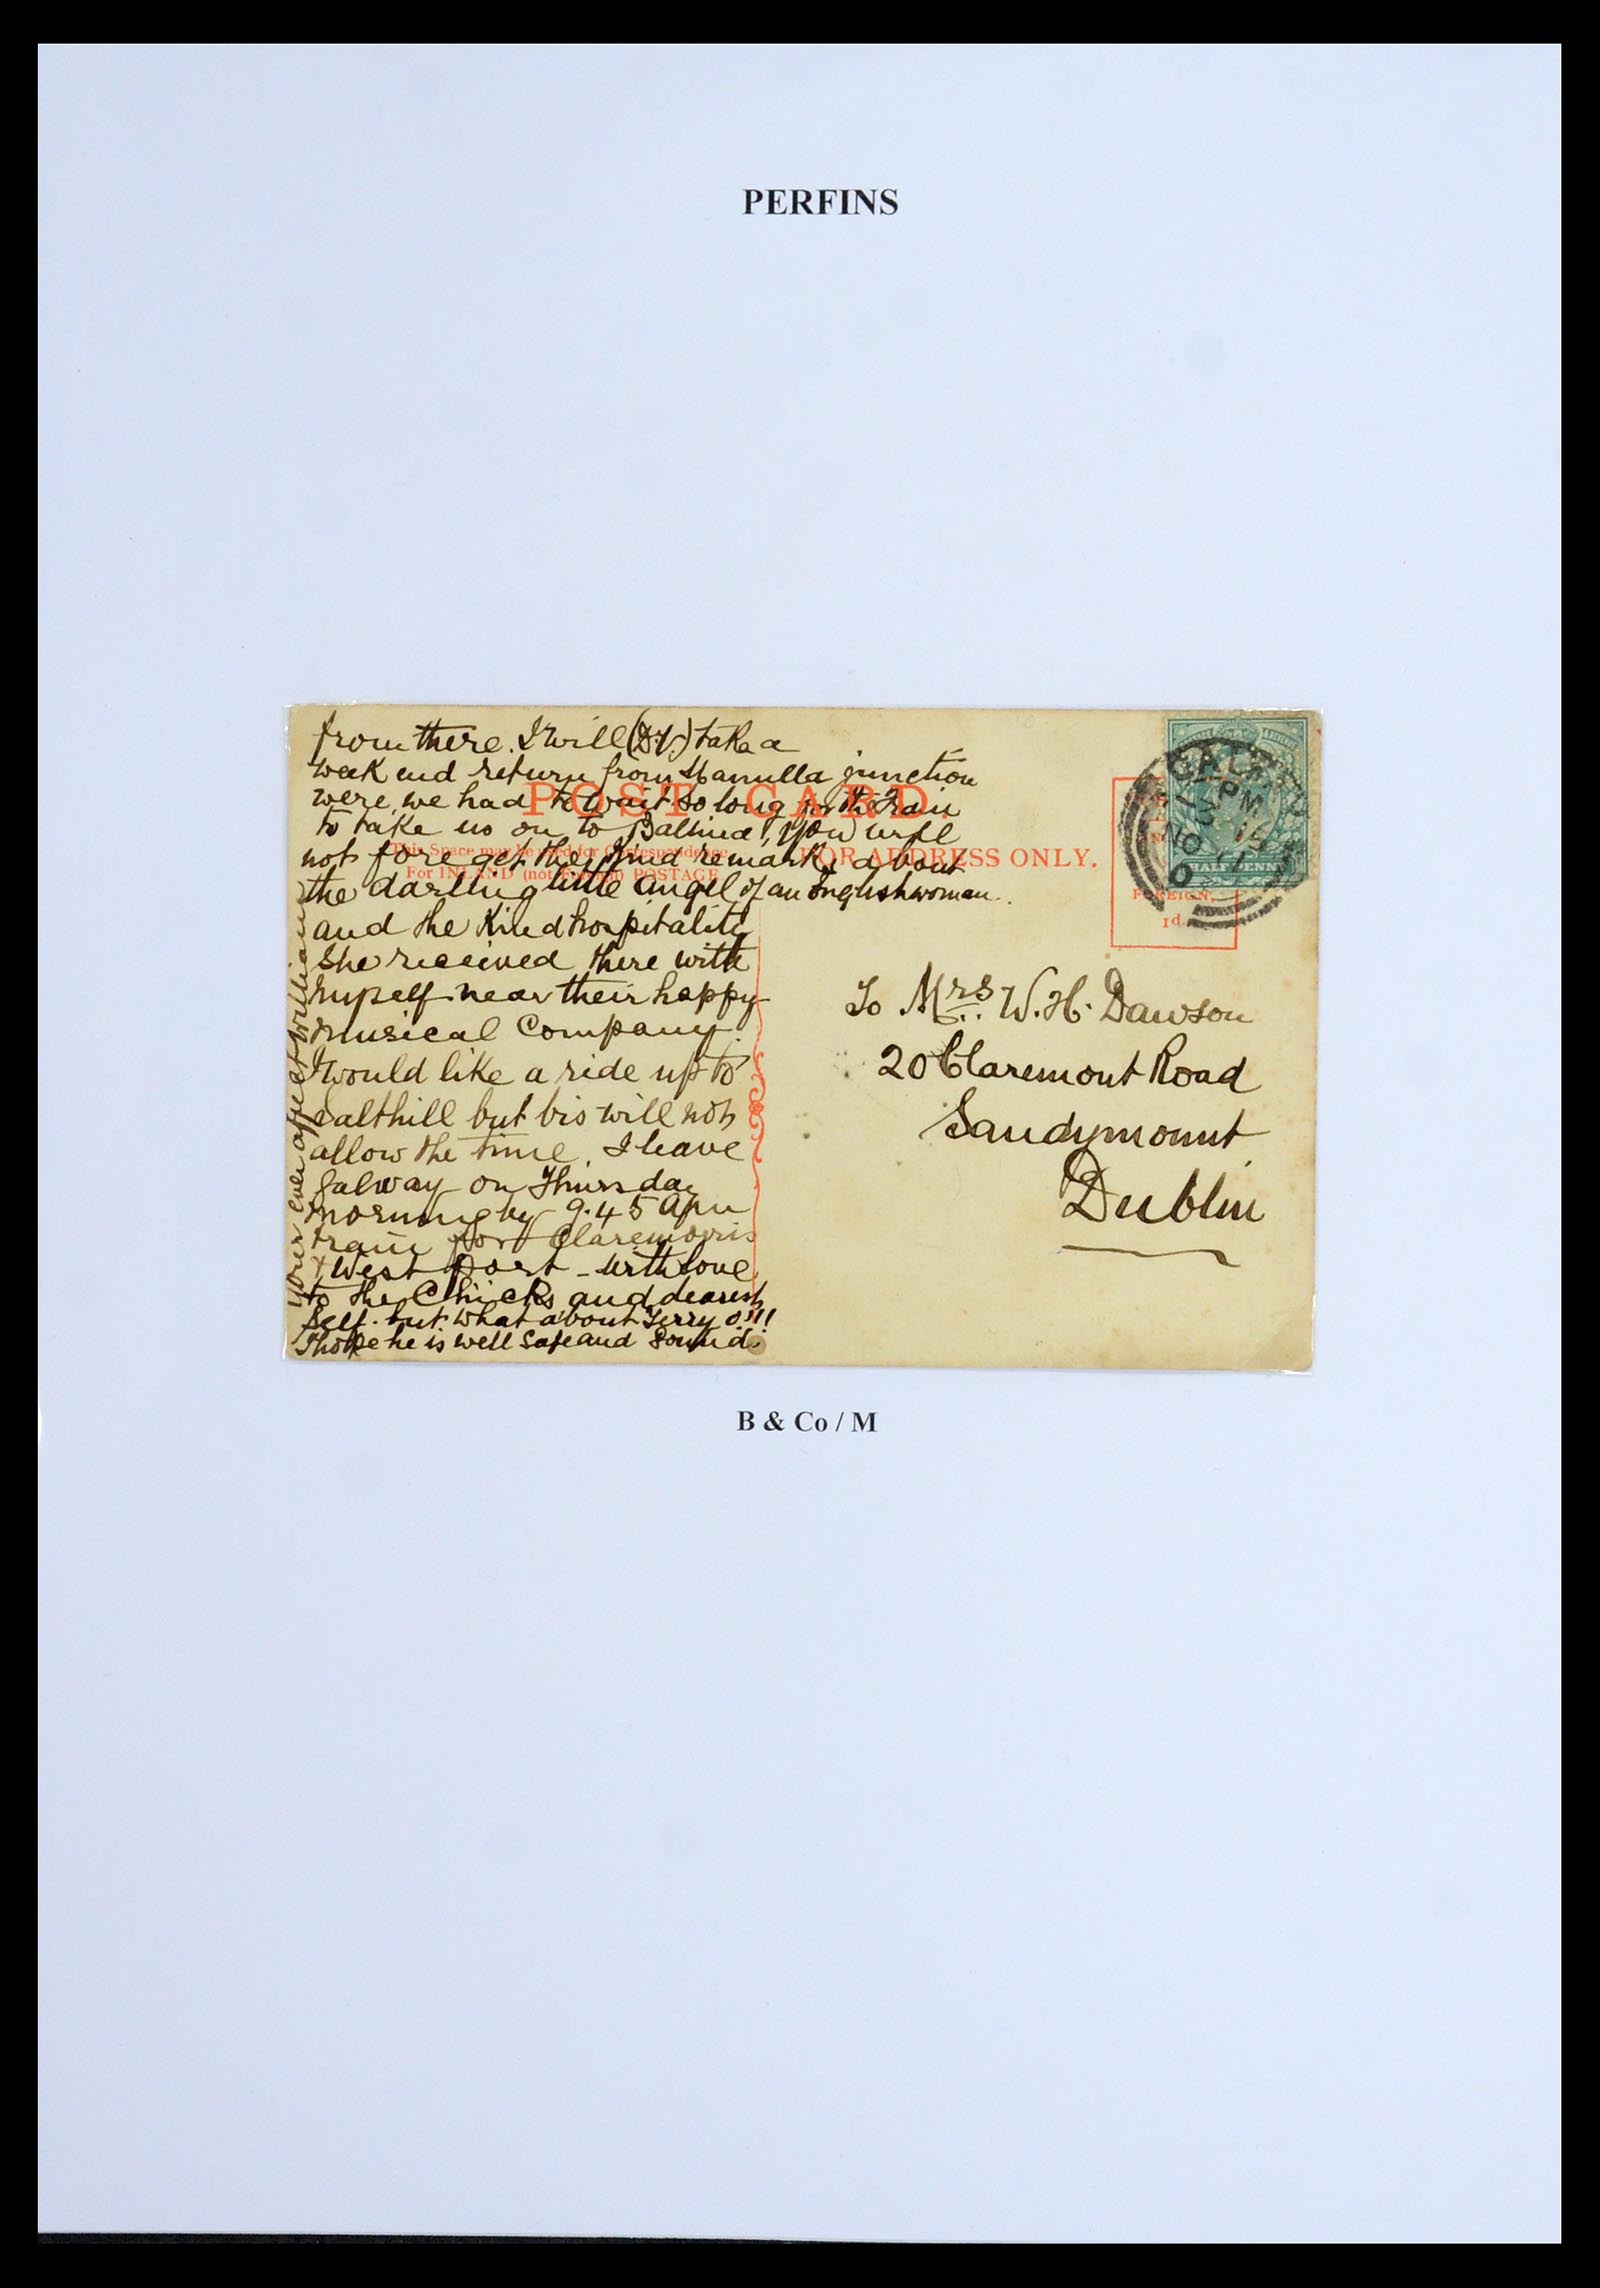 PERFINS
from there. I will (D.V.) take a
week end return from Manulla junction
were we had to wait so long for the train
to take us on to Ballina! you will
not fore get they kind remarks about
the darling little angel of an Englishwoman.
and the kind hospitality
she received there with
myself near their happy
musical Company.
I would like a ride up to
Salthill but bis will not
allow the time. I leave
Galway on Thursday
morning by 9.45 am
train for Claremorris
& West port - with love
to the Chicks and dearest
self. but what about Terry o!!!
I hope he is well safe and sound.
your ever affect William
POST CARD.
This Space may be used for Correspondence
For INLAND (not Foreign) POSTAGE
FOR ADDRESS ONLY.
FOREIGN,
1d.
GALWAY
PM
NO 15
To Mrs W. H. Dawson
20 Claremont Road
Sandymount
Dublin
B & Co / M